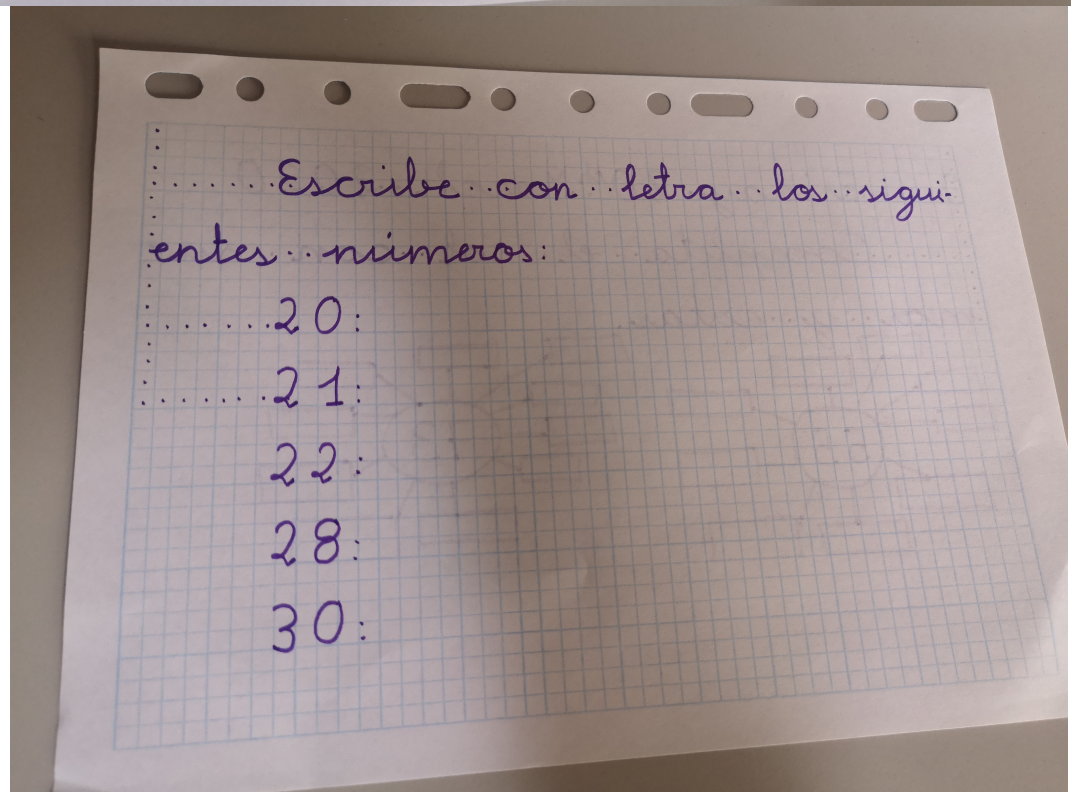 Escribe con letra los sigui-
entes números:
20:
21:
22:
28:
30: